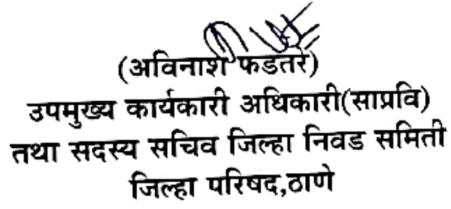 (अविनाश फडतरे)
उपमुख्य कार्यकारी अधिकारी(साप्रवि)
तथा सदस्य सचिव जिल्हा निवड समिती
जिल्हा परिषद,ठाणे